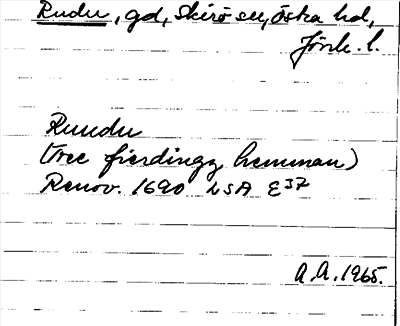 Rudu, gd, Skirö sn, Östra hd,
Jönk. l.
Ruudu
(Tree fierdingz hemman)
Renov. 1690 LSA E37
A.A. 1965.